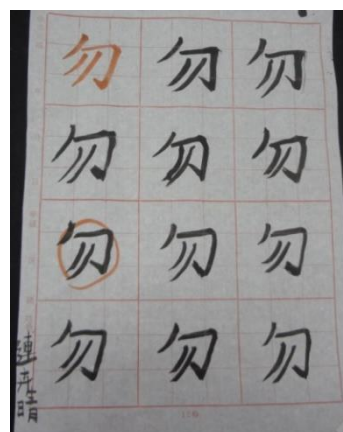 勿 勿 勿
勿 勿 勿
勿 勿 勿
勿 勿 勿